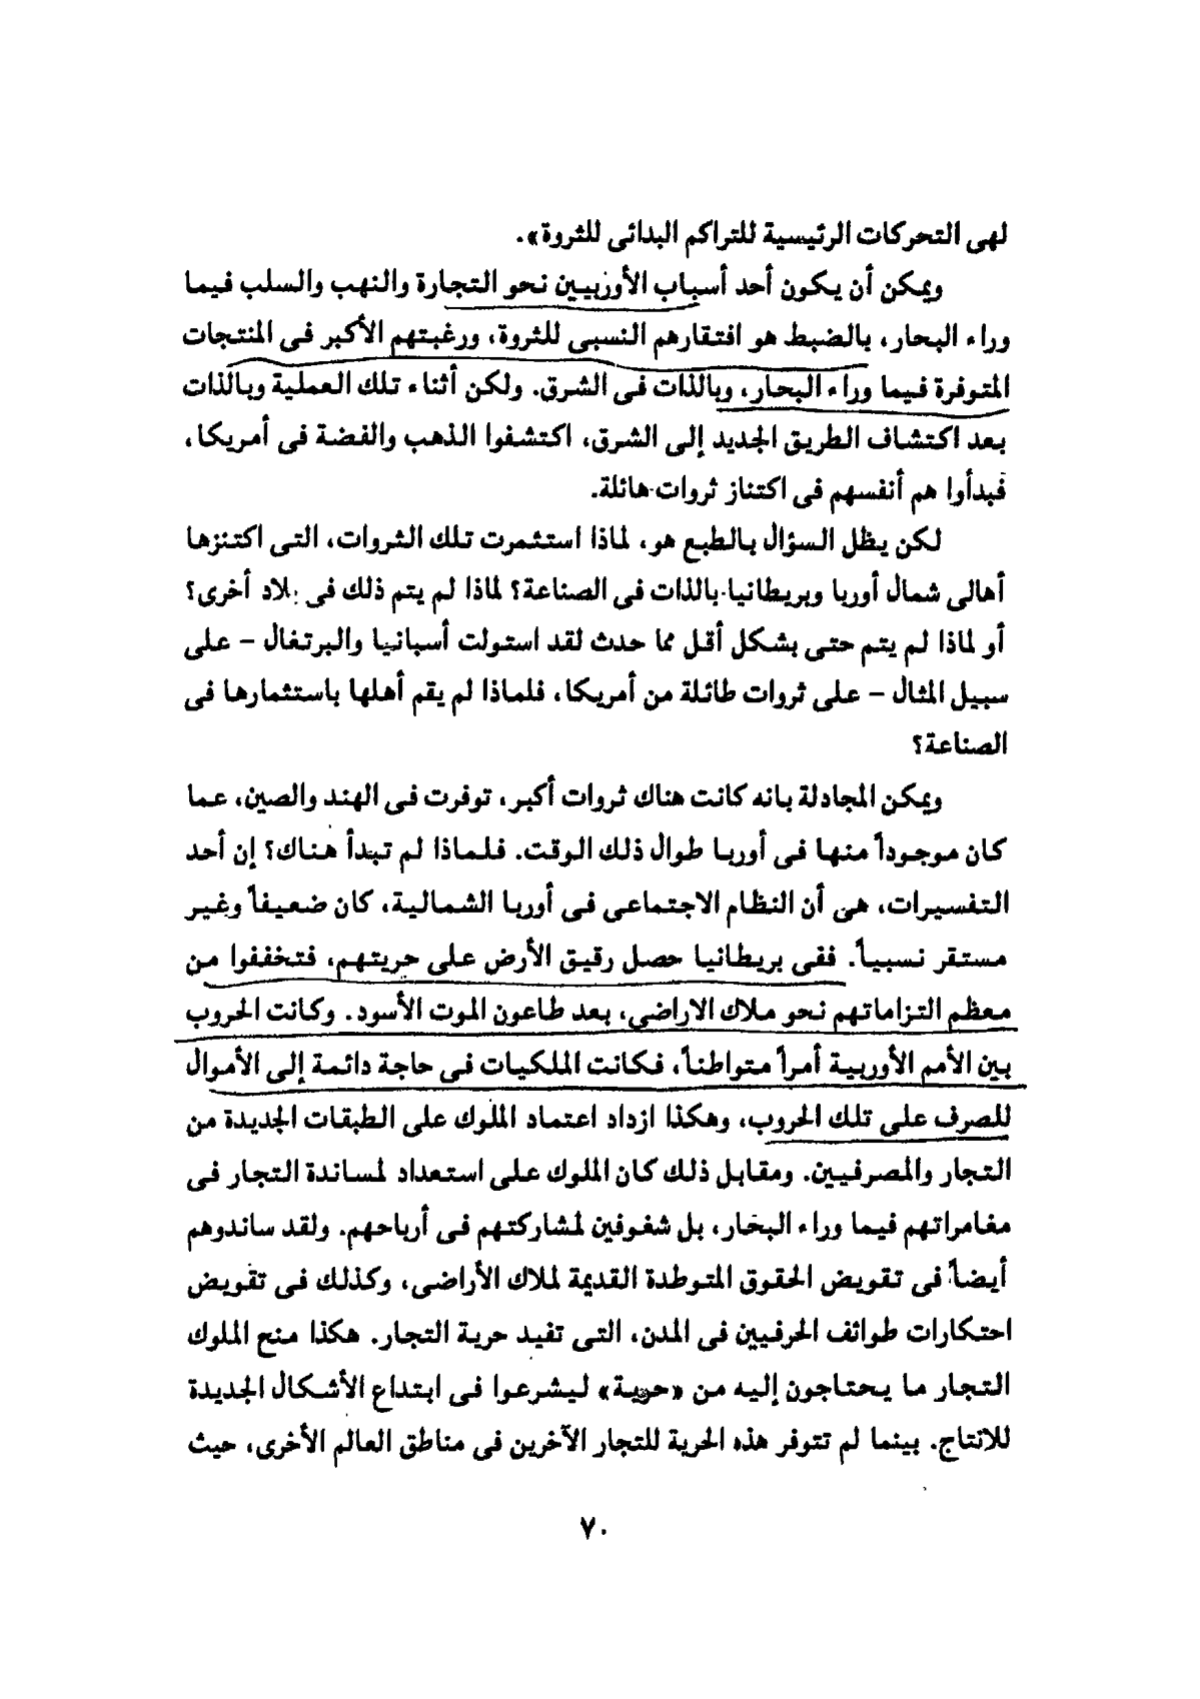 لهى التحركات الرئيسية للتراكم البدائى للثروة».
ويمكن أن يكون أحد أسباب الأوربيين نحو التجارة والنهب والسلب فيما
وراء البحار، بالضبط هو افتقارهم النسبى للثروة، ورغبتهم الأكبر فى المنتجات
المتوفرة فيما وراء البحار، وبالذات فى الشرق. ولكن أثناء تلك العملية وبالذات
بعد اكتشاف الطريق الجديد إلى الشرق، اكتشفوا الذهب والفضة فى أمريكا،
فبدأوا هم أنفسهم فى اكتناز ثروات هائلة.
لكن يظل السؤال بالطبع هو، لماذا استثمرت تلك الثروات، التى اكتنزها
أهالى شمال أوربا وبريطانيا بالذات فى الصناعة؟ لماذا لم يتم ذلك فى بلاد أخرى؟
أو لماذا لم يتم حتى بشكل أقل مما حدث لقد استولت أسبانيا والبرتغال – على
سبيل المثال – على ثروات طائلة من أمريكا، فلماذا لم يقم أهلها باستثمارها فى
الصناعة؟
ويمكن المجادلة بانه كانت هناك ثروات أكبر، توفرت فى الهند والصين، عما
كان موجوداً منها فى أوربا طوال ذلك الوقت. فلماذا لم تبدأ هناك؟ إن أحد
التفسيرات، هى أن النظام الاجتماعى فى أوربا الشمالية، كان ضعيفاً وغير
مستقر نسبياً. ففى بريطانيا حصل رقيق الأرض على حريتهم، فتخففوا من
معظم التزاماتهم نحو ملاك الاراضى، بعد طاعون الموت الأسود. وكانت الحروب
بين الأمم الأوربية أمراً متواطناً، فكانت الملكيات فى حاجة دائمة إلى الأموال
للصرف على تلك الحروب، وهكذا ازداد اعتماد الملوك على الطبقات الجديدة من
التجار والمصرفيين. ومقابل ذلك كان الملوك على استعداد لمساندة التجار فى
مغامراتهم فيما وراء البحار، بل شغوفين لمشاركتهم فى أرباحهم. ولقد ساندوهم
أيضاً فى تقويض الحقوق المتوطدة القديمة لملاك الأراضى، وكذلك فى تقويض
احتكارات طوائف الحرفيين فى المدن، التى تفيد حرية التجار. هكذا منح الملوك
التجار ما يحتاجون إليه من «حرية» ليشرعوا فى ابتداع الأشكال الجديدة
للانتاج. بينما لم تتوفر هذه الحرية للتجار الآخرين فى مناطق العالم الأخرى، حيث
٧٠